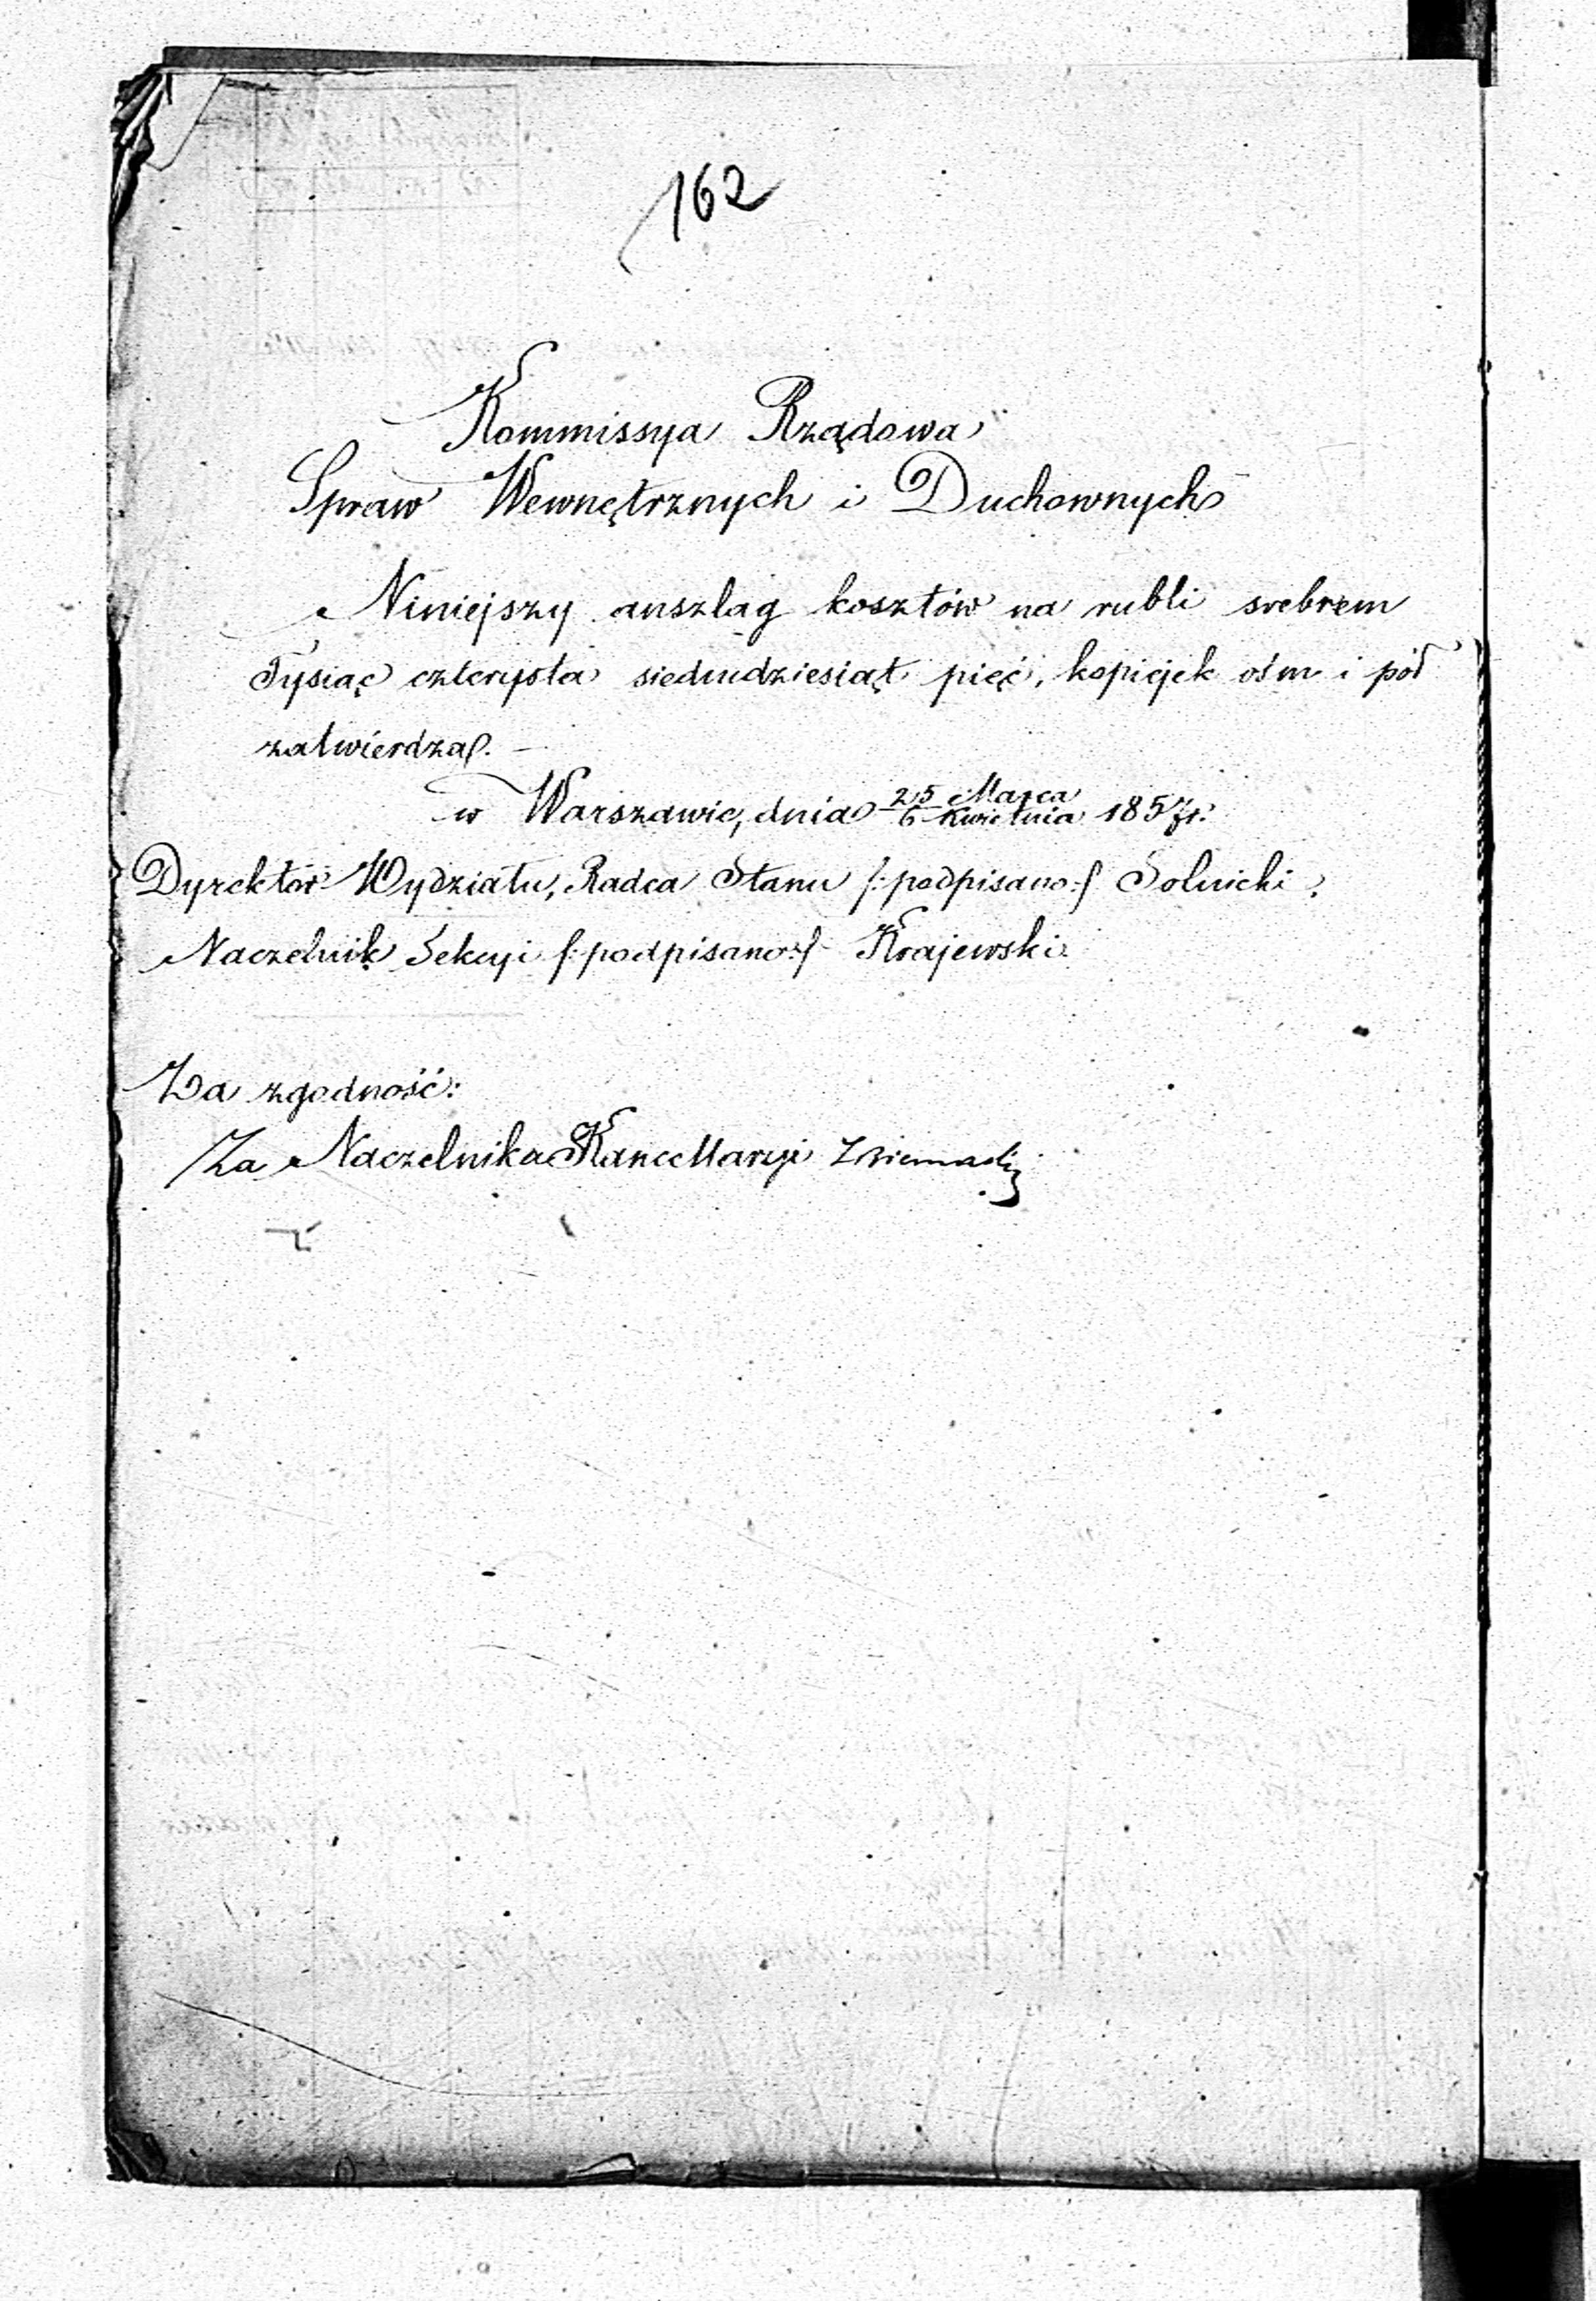 162
Kommissya Rządowa
Spraw Wewnętrznych i Duchownych
Niniejszy anszlag kosztów na rubli srebrem
Tysiąc czterysta siedmdziesiąt pięć, kopiejek ośm i pół
zatwierdza. —
w Warszawie, dnia 25 Marca / 6 Kwietnia 1857 r.
Dyrektor Wydziału, Radca Stanu /:podpisano:/ Solnicki,
Naczelnik Sekcyi /:podpisano:/ Krajewski
Za zgodność:
Za Naczelnika Kancellaryi